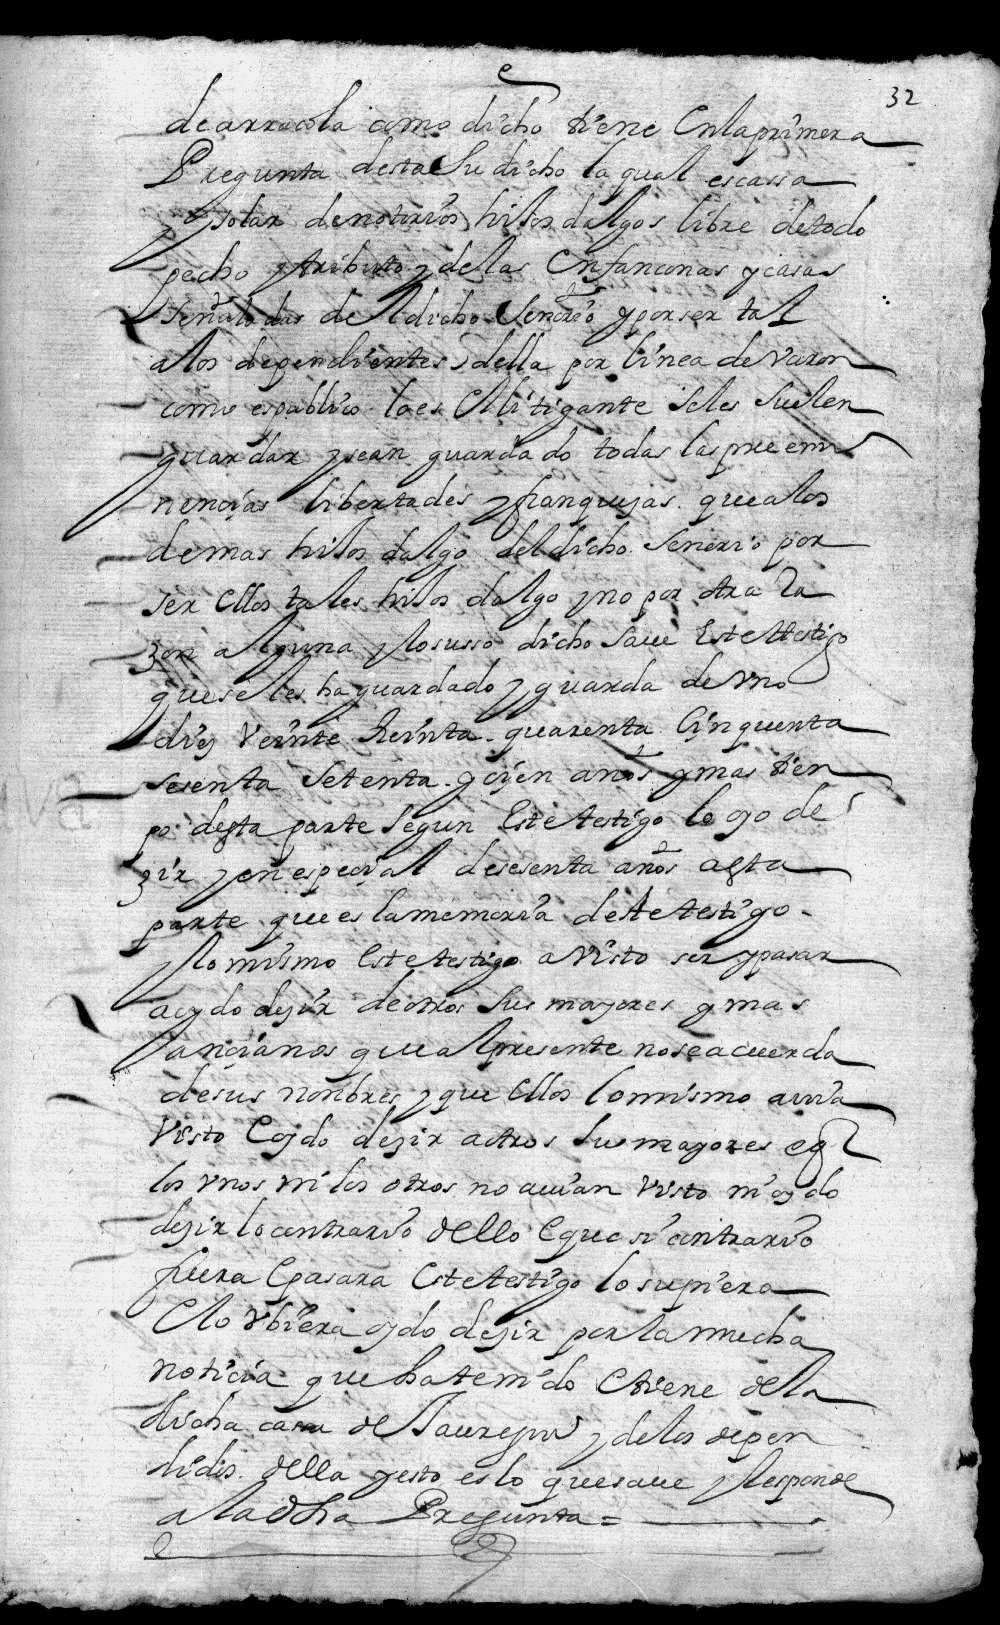 32
de arracola como dicho tiene en la primera
Pregunta desta su dicho la qual es cassa
y solar de notorios hijos dalgos libre de todo
pecho y tributo y de las enfanconas y casas
señaladas del dicho señorio y por ser tal
a los dependientes della por linea de varon
como es publico lo es el litigante se les suelen
guardar y sean guardado todas las preemi
nencias libertades y franquejas que a los
demas hijos dalgo del dicho senorio por
ser ellos tales hijos dalgo y no por otra Ra
zon alguna y lo susso dicho save este testigo
que se les ha guardado y guarda de uno
diez veinte treinta quarenta cinquenta
sesenta setenta y cien años y mas tien
po desta parte segun este testigo lo oyo de
zir y en especial de sesenta años a esta
parte que es la memoria deste testigo
y lo mismo este testigo a visto ser y pasar
a oydo dezir de otros sus mayores y mas
ancianos que al presente no se acuerda
de sus nonbres y que ellos lo mismo avia
visto e oydo dezir a otros sus mayores e q
los unos ni los otros no avian visto ni oydo
dezir lo contrario dello e que si contrario
fuera e pasara este testigo lo supiera
e lo ubiera oydo dezir por la mucha
noticia que ha tenido e tiene de la
dicha casa de Jauregui y de los depen
didis della y esto es lo que save y Responde
a la dha Pregunta =